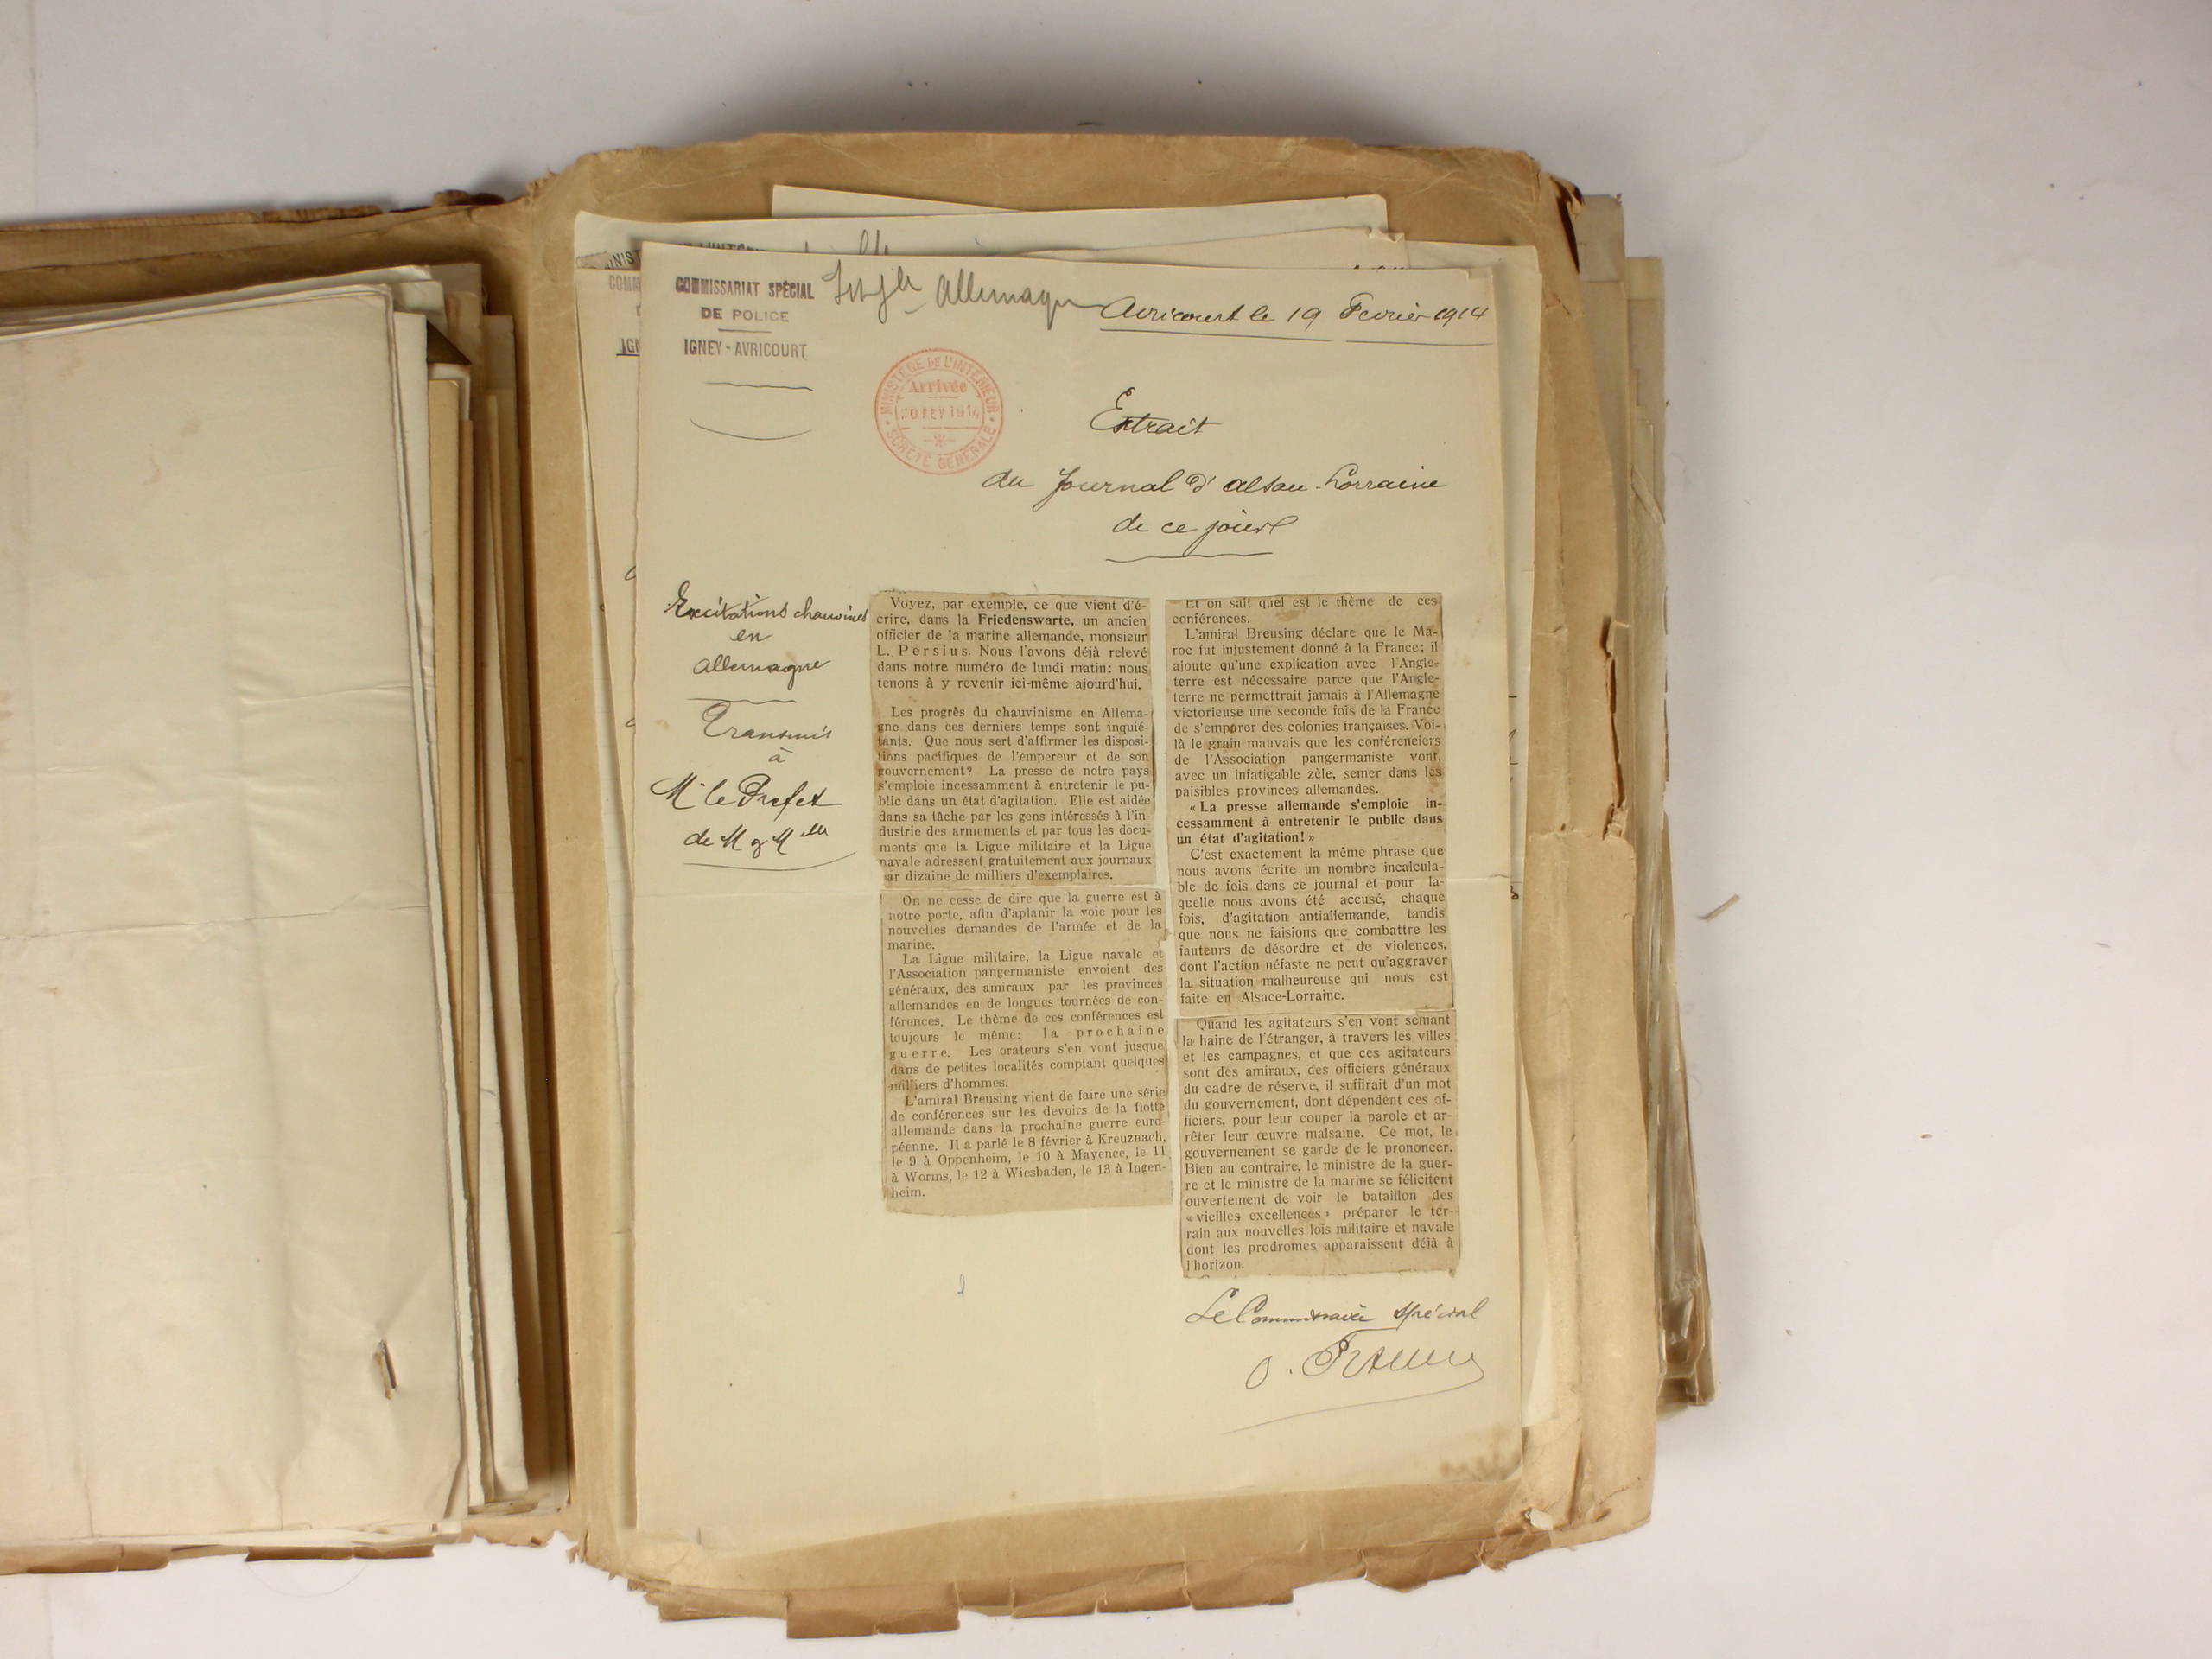 COMMISSARIAT SPÉCIAL
DE POLICE
IGNEY-AVRICOURT
Allemagne
Avricourt le 19 Fevrier 1914
MINISTÈRE DE L'INTÉRIEUR
Arrivée
20 FEV 1914
SÛRETÉ GÉNÉRALE
Extrait
du Journal d'Alsace-Lorraine
de ce jour
Excitations chauvines
en
Allemagne
Transmis
à
Mr le Prefet
de M & Mlle
Voyez, par exemple, ce que vient d'é-
crire, dans la Friedenswarte, un ancien
officier de la marine allemande, monsieur
L. Persius. Nous l'avons déjà relevé
dans notre numéro de lundi matin: nous
tenons à y revenir ici-même ajourd'hui.
Les progrès du chauvinisme en Allema-
gne dans ces derniers temps sont inquié-
tants. Que nous sert d'affirmer les disposi-
tions pacifiques de l'empereur et de son
gouvernement? La presse de notre pays
s'emploie incessamment à entretenir le pu-
blic dans un état d'agitation. Elle est aidée
dans sa tâche par les gens intéressés à l'in-
dustrie des armements et par tous les docu-
ments que la Ligue militaire et la Ligue
navale adressent gratuitement aux journaux
par dizaine de milliers d'exemplaires.
On ne cesse de dire que la guerre est à
notre porte, afin d'aplanir la voie pour les
nouvelles demandes de l'armée et de la
marine.
La Ligue militaire, la Ligue navale et
l'Association pangermaniste envoient des
généraux, des amiraux par les provinces
allemandes en de longues tournées de con-
férences. Le thème de ces conférences est
toujours le même: la prochaine
guerre. Les orateurs s'en vont jusque
dans de petites localités comptant quelques
milliers d'hommes.
L'amiral Breusing vient de faire une série
de conférences sur les devoirs de la flotte
allemande dans la prochaine guerre euro-
péenne. Il a parlé le 8 février à Kreuznach,
le 9 à Oppenheim, le 10 à Mayence, le 11
à Worms, le 12 à Wiesbaden, le 13 à Ingen-
heim.
Et on sait quel est le thème de ces
conférences.
L'amiral Breusing déclare que le Ma-
roc fut injustement donné à la France; il
ajoute qu'une explication avec l'Angle-
terre est nécessaire parce que l'Angle-
terre ne permettrait jamais à l'Allemagne
victorieuse une seconde fois de la France
de s'emparer des colonies françaises. Voi-
là le grain mauvais que les conférenciers
de l'Association pangermaniste vont,
avec un infatigable zèle, semer dans les
paisibles provinces allemandes.
«La presse allemande s'emploie in-
cessamment à entretenir le public dans
un état d'agitation!»
C'est exactement la même phrase que
nous avons écrite un nombre incalcula-
ble de fois dans ce journal et pour la-
quelle nous avons été accusé, chaque
fois, d'agitation antiallemande, tandis
que nous ne faisions que combattre les
fauteurs de désordre et de violences,
dont l'action néfaste ne peut qu'aggraver
la situation malheureuse qui nous est
faite en Alsace-Lorraine.
Quand les agitateurs s'en vont semant
la haine de l'étranger, à travers les villes
et les campagnes, et que ces agitateurs
sont des amiraux, des officiers généraux
du cadre de réserve, il suffirait d'un mot
du gouvernement, dont dépendent ces of-
ficiers, pour leur couper la parole et ar-
rêter leur œuvre malsaine. Ce mot, le
gouvernement se garde de le prononcer.
Bien au contraire, le ministre de la guer-
re et le ministre de la marine se félicitent
ouvertement de voir le bataillon des
«vieilles excellences» préparer le ter-
rain aux nouvelles lois militaire et navale
dont les prodromes apparaissent déjà à
l'horizon.
Le Commissaire spécial